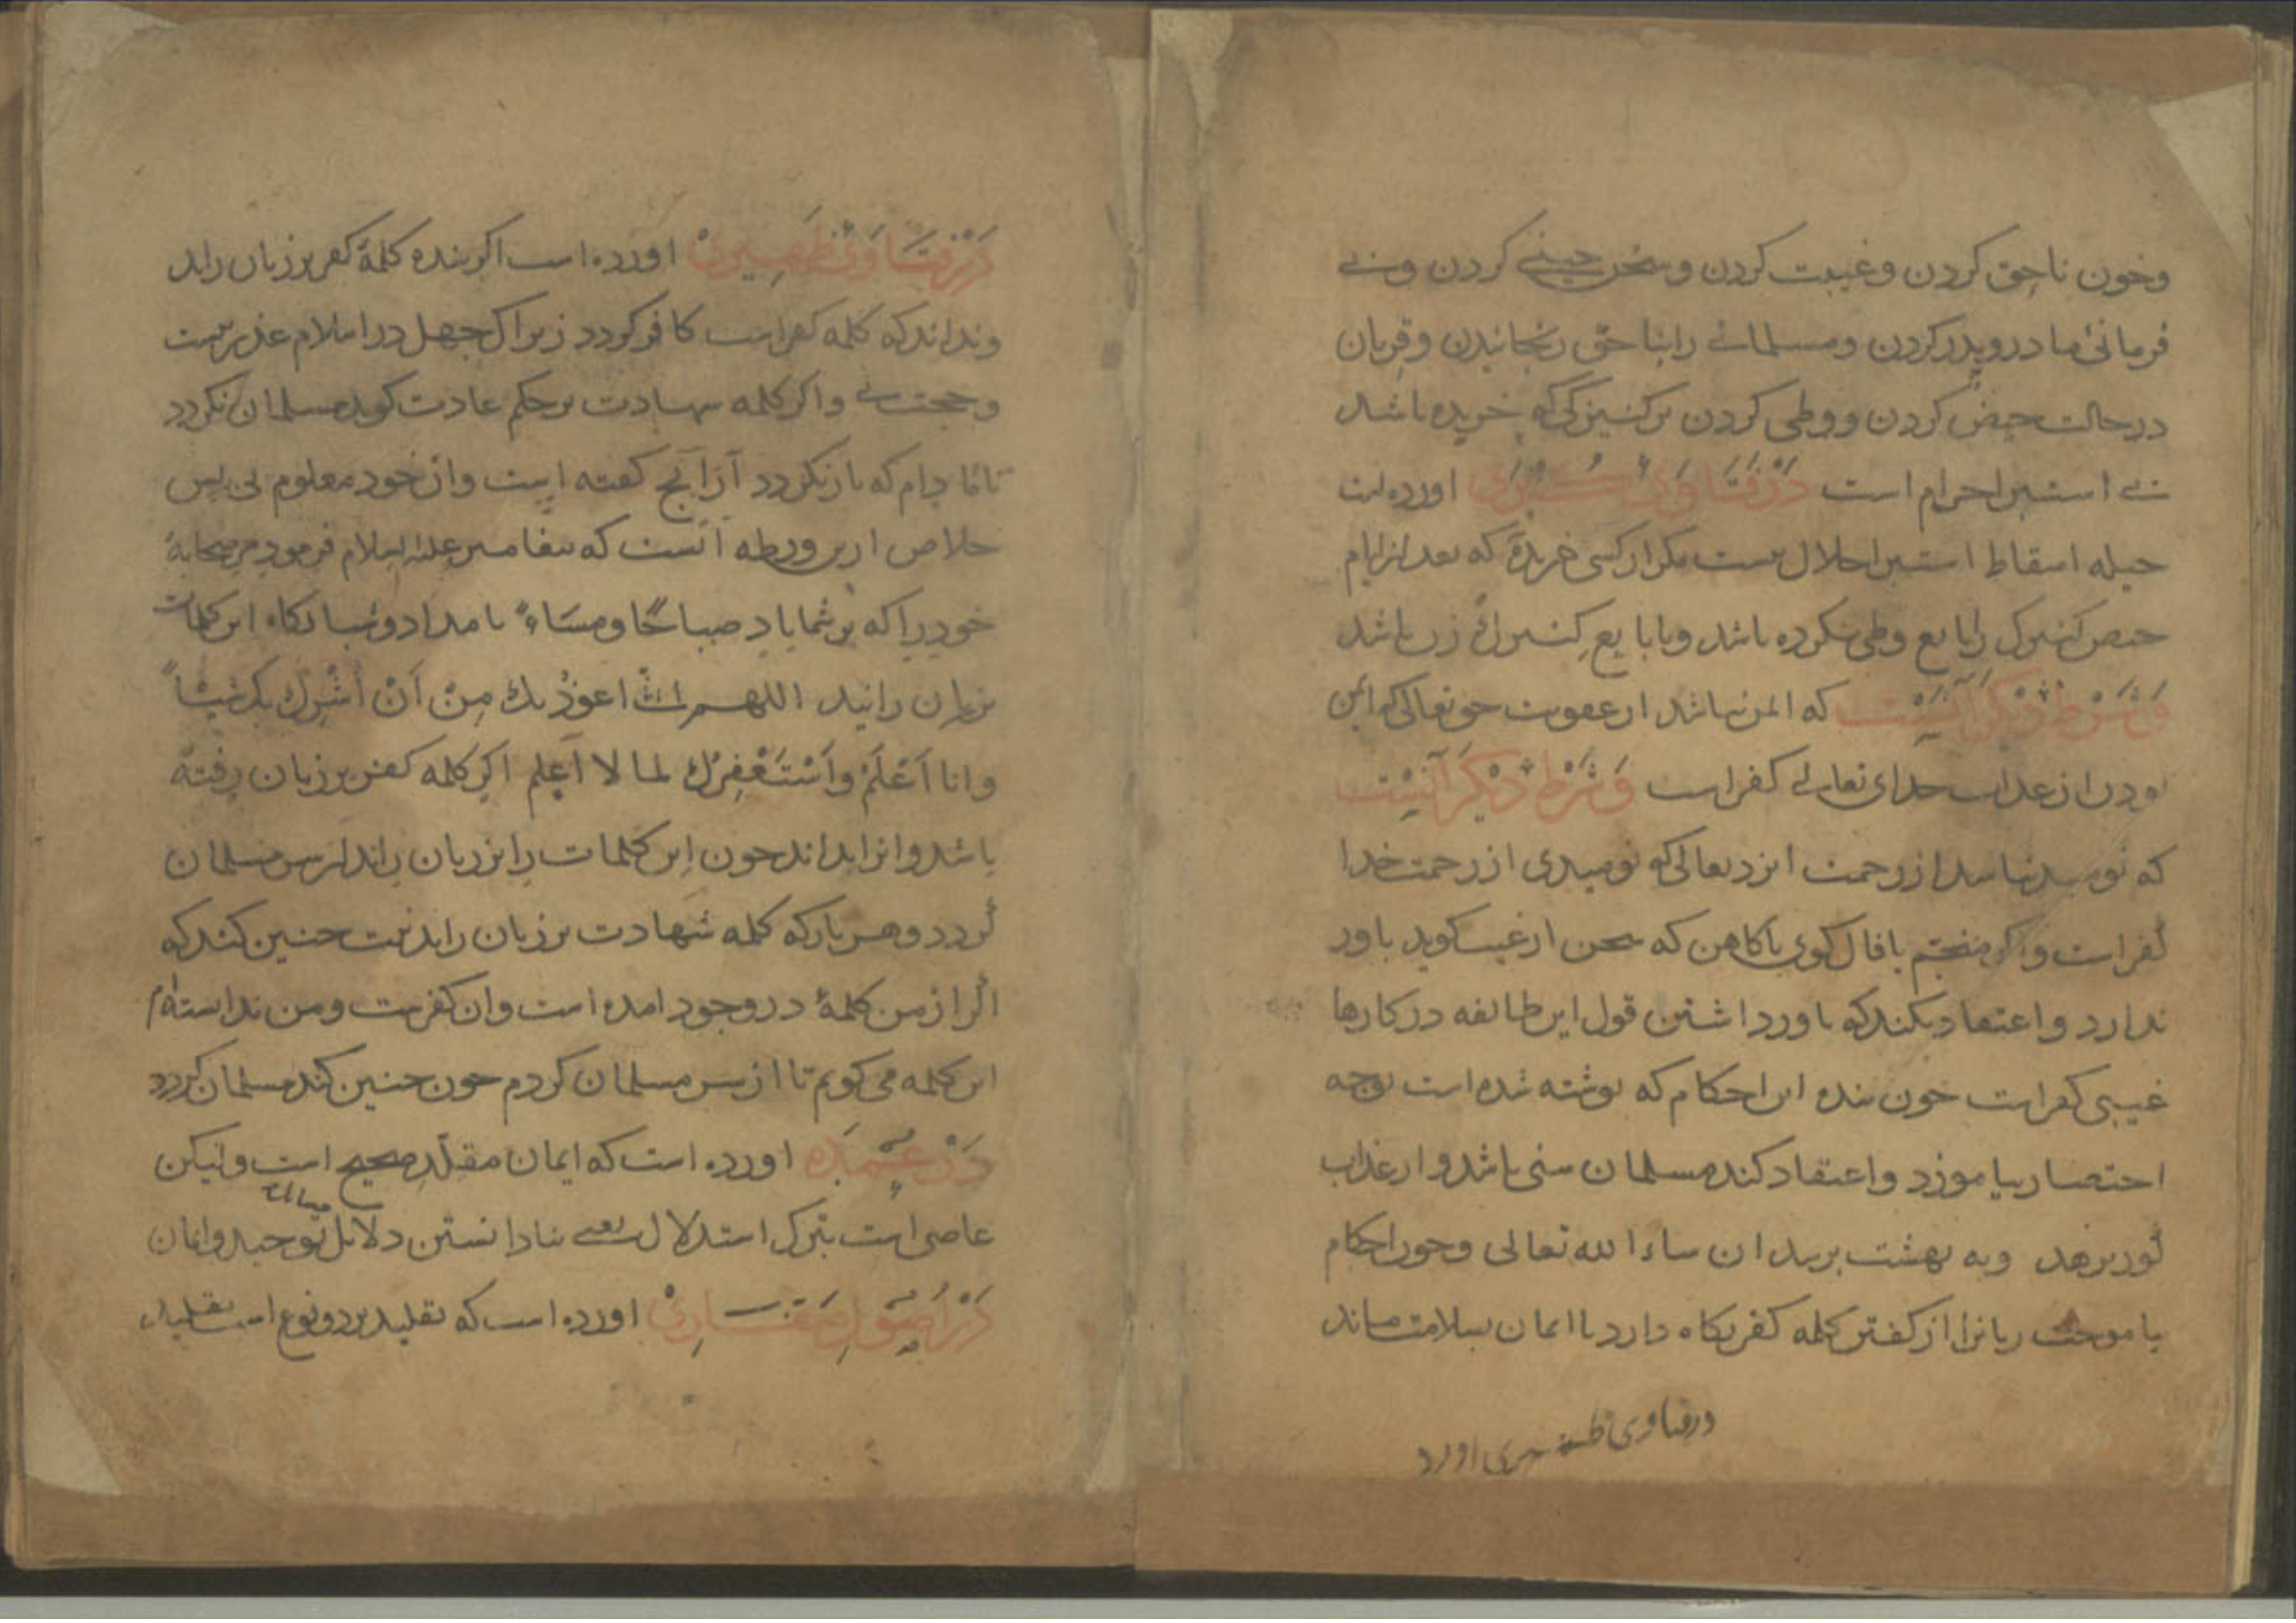 وخون ناحق کردن وغیبت کردن وسخن چینی کردن وبے
فرمانئ مادر وپدر کردن ومسلمانے را بناحق رنجانیدن وقربان
در حالت حیض کردن ووطی کردن بر کنیزکی که خریده باشد
بے استبرا حرام است دَرْ فَتَاوَیٰ اورده است
حیله اسقاط استبرا حلال نیست مکر از کسی خریده که بعد از ایام
حیض کنیزک را بایع وطی نکرده باشد وبا بایع کنیزک زن باشد
وَشَرْطِ دِیْکَرْ آنَیْسْت که ایمن نباشد از عقوبت حق تعالی که ایمن
بودن از عذاب خدای تعالے کفر است وَشَرْطِ دِیْکَرْ آنِیْسْت
که نومید نباشد از رحمت ایزد تعالی که نومیدی از رحمت خدا
کفر است واکر منجّم یا فال کوی یا کاهن که سخن از غیب کوید باور
ندارد واعتقاد بکند که باور داشتن قول این طائفه در کارها
غیبی کفر است چون بنده این احکام که نوشته شده است بوجه
اختصار بیاموزد واعتقاد کند مسلمان سنی باشد واز عذاب
کور برهد وبه بهشت برسد ان شاء الله تعالی وچون احکام
بیاموخت زبانرا از کفتن کلمه کفر نکاه دارد تا ایمان بسلامت ماند
در فتاوی ظهیری اورد
دَرْ فَتَاوَیٰ ظَهِیرِیْ اورده است اکر بنده کلمۀ کفر بر زبان راند
ونداند که کلمه کفر است کافر کردد زیرا که جهل در اسلام عذر نیست
وحجت نے واکر کلمه شهادت بر حکم عادت کوید مسلمان نکردد
تا مادام که باز نکردد آز آنچ کفته است وان خود معلوم نی پس
خلاص ازین ورطه آنست که پیغامبر علیه السلام فرمود مر صحابۀ
خود را که بر شما باد صباحًا ومسَاءً بامداد وشبانکاه این کلمات
بر زبان رانید اللهم انّی اعوذُ بك مِنْ اَنْ اُشْرِكَ بك شیئاً
وانا اَعْلَمُ واَسْتَغْفِرُك لما لا اَعلم اکر کلمه کفر بر زبان رفته
باشد وانرا نداند چون این کلمات را بر زبان راند از سر مسلمان
کردد وهر بار که کلمه شهادت بر زبان راند نیت چنین کند که
اکر از من کلمۀ در وجود امده است وان کفر است ومن ندانسته ام
این کلمه می کویم تا از سر مسلمان کردم چون چنین کند مسلمان کردد
دَرْ عُمْدَه اورده است که ایمان مقلّد صحیح است ولیکن
عاصی است بترک استدلال یعنے بنادانستن دلائل توحید وایمان
دَرْ اُصُولِ صَفَّارِیْ اورده است که تقلید بر دو نوع است تقلید